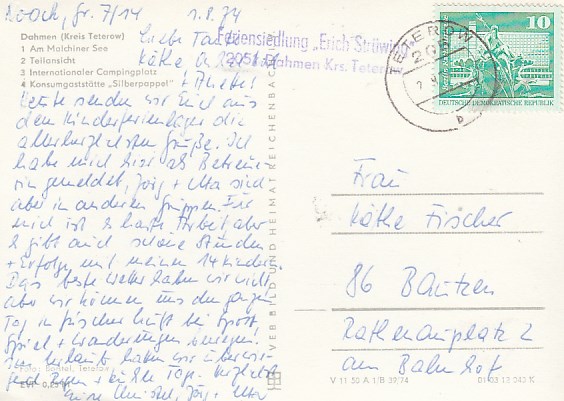 Gr. 7/14 1.8.74
Dahmen (Kreis Teterow)
1 Am Malchiner See
2 Teilansicht
3 Internationaler Campingplatz
4 Konsumgaststätte „Silberpappel"
Liebe Tante
Käthe
heute senden wir Euch aus
dem Kinderferienlager die
allerherzlichsten Grüße. Ich
habe mich hier als Betreue-
rin gemeldet, Jörg + Uta sind
aber in anderen Gruppen. Für
mich ist es harte Arbeit, aber
es gibt auch schöne Stunden
+ Erfolge mit meinen 14 Kindern.
Das beste Wetter haben wir nicht
aber wir können uns den ganzen
Tag in frischer Luft bei Sport,
Spiel + Wanderungen bewegen.
Im Urlaub haben wir überwie-
gend Regen + kühle Tage. Herzlichst
Eure Jörg + Uta
Foto: Teterow
EVP 0,25
Feriensiedlung „Erich Strüwing"
2051 Dahmen Krs. Teterow
VEB BILD UND HEIMAT REICHENBACH
10
DEUTSCHE DEMOKRATISCHE REPUBLIK
b
Frau
Käthe Fischer
86 Bautzen
Rathenauplatz 2
am Bahnhof
V 11 50 A 1/B 39/74
01 03 13 042 K